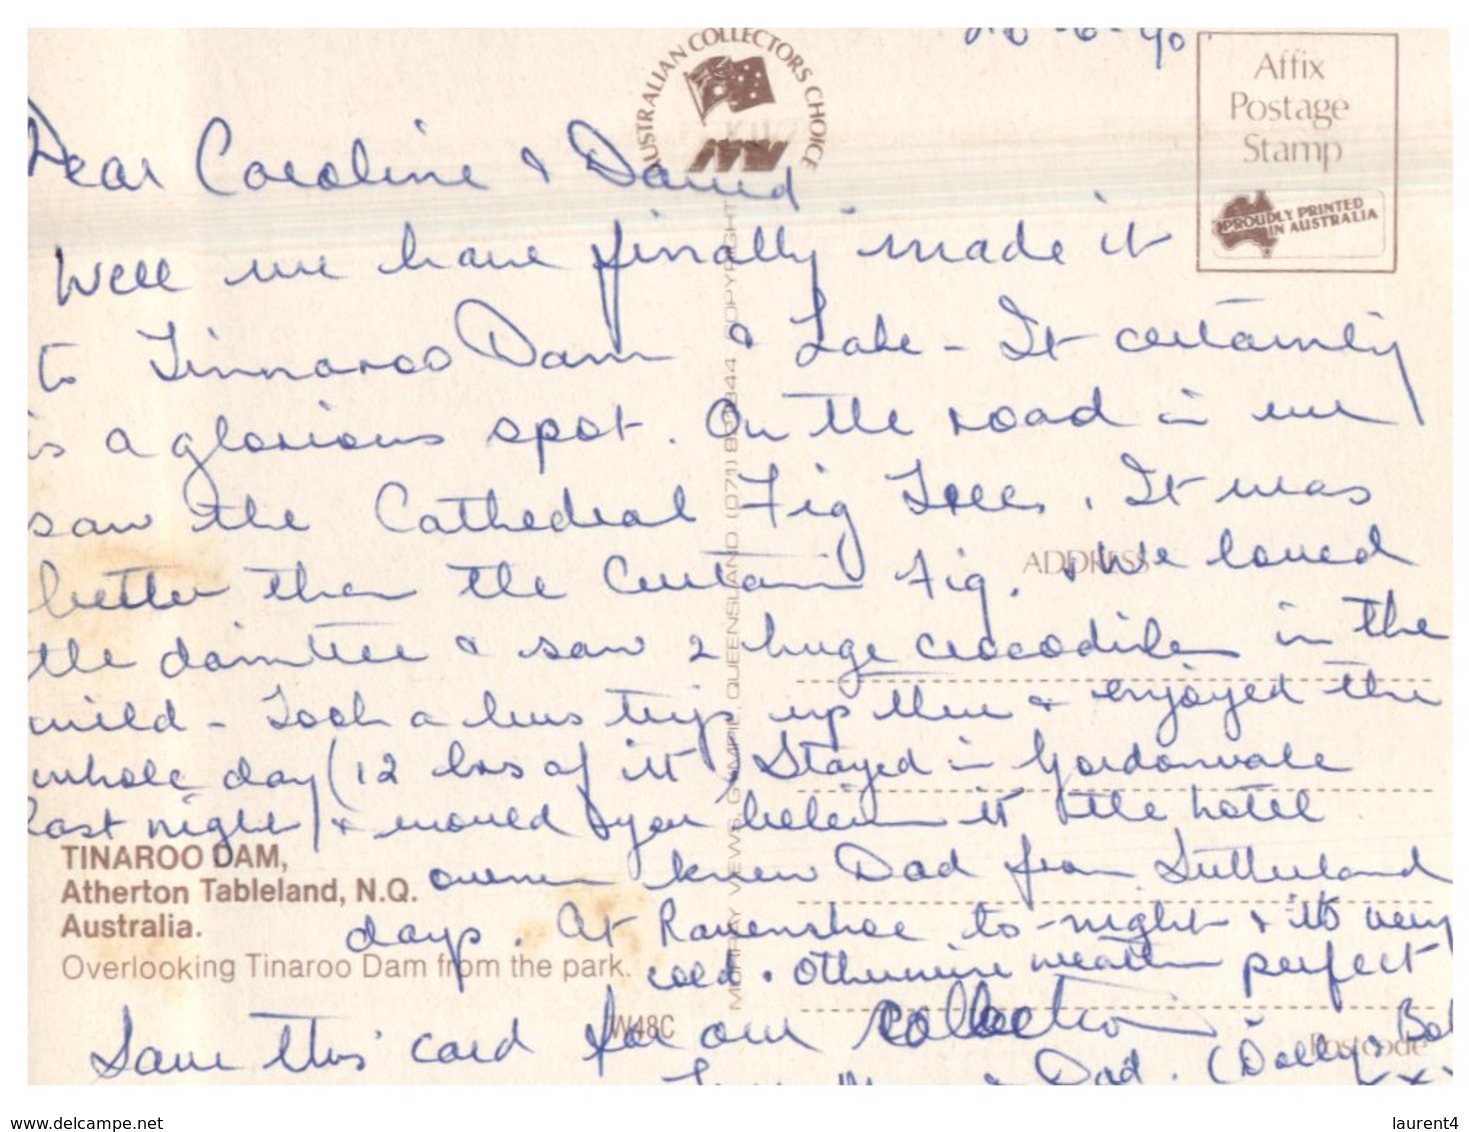 -6-90.
AUSTRALIAN COLLECTORS CHOICE
Affix
Postage
Stamp
PROUDLY PRINTED
IN AUSTRALIA
Dear Caroline & David
Well we have finally made it
to Tinnaroo Dam & Lake - It certainly
is a glorious spot. On the road in we
saw the Cathedral Fig Trees. It was
better than the Curtain Fig. & We loved
the daintree & saw 2 huge crocodiles in the
wild - Took a bus trip up there & enjoyed the
whole day (12 hrs of it) Stayed in Gordonvale
last night & would you believe it the hotel
owner knew Dad from Sutherland
days. At Ravenshoe to-night & it's very
cold. Otherwise weather perfect
Save this card for our collection
& Dad. (Dolly & Bob
ADDRESS
Postcode
TINAROO DAM,
Atherton Tableland, N.Q.
Australia.
Overlooking Tinaroo Dam from the park.
W48C
MURRAY VIEWS, GYMPIE, QUEENSLAND. (071) COPYRIGHT
www.delcampe.net
laurent4